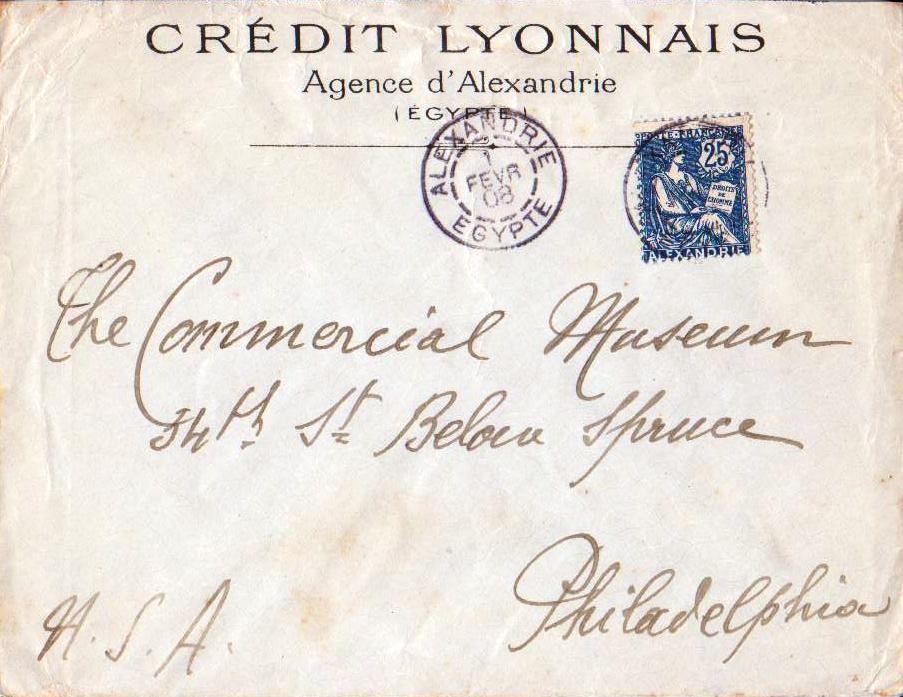 CRÉDIT LYONNAIS
Agence d'Alexandrie
(ÉGYPTE)
ALEXANDRIE
1
FEVR
08
EGYPTE
25
DROITS
DE
L'HOMME
ALEXANDRIE
The Commercial Museum
34th St Below Spruce
Philadelphia
U. S. A.